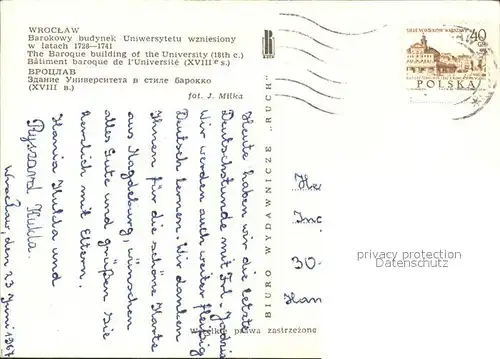 WROCŁAW
Barokowy budynek Uniwersytetu wzniesiony
w latach 1728—1741
The Baroque building of the University (18th c.)
Bâtiment baroque de l'Université (XVIII e s.)
ВРОЦЛАВ
Здание Университета в стиле барокко
(XVIII в.)
fot. J. Milka
BIURO WYDAWNICZE „RUCH"
Wszelkie prawa zastrzeżone
40
POLSKA
Heute haben wir die letzte
Deutschstunde mit Frl.
Wir werden auch weiter fleißig
Deutsch lernen. Wir danken
Ihnen für die schöne Karte
aus Magdeburg, wünschen
alles Gute und grüßen Sie
herzlich mit Eltern.
Hania Hulda und
Ryszard Hulda.
Wrocław, den 23 Juni 1967
Her
In
30-
Han
privacy protection
Datenschutz